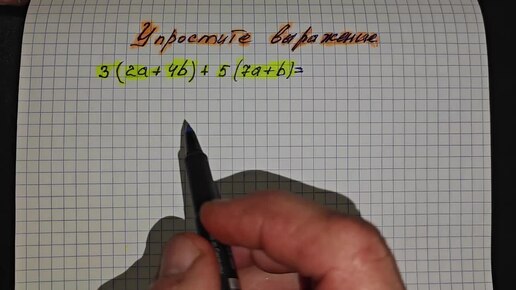 Упростите выражение
3(2a+4b)+5(7a+b)=